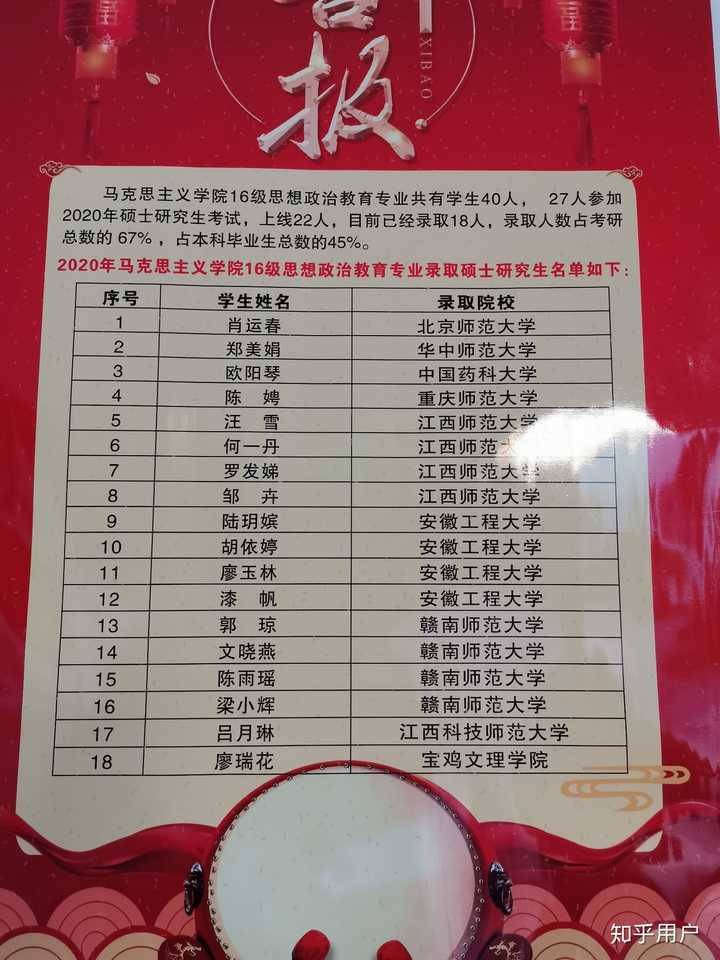 喜报
XIBAO
马克思主义学院16级思想政治教育专业共有学生40人， 27人参加
2020年硕士研究生考试，上线22人，目前已经录取18人，录取人数占考研
总数的 67% ，占本科毕业生总数的45%。
2020年马克思主义学院16级思想政治教育专业录取硕士研究生名单如下：
序号 学生姓名 录取院校
1 肖运春 北京师范大学
2 郑美娟 华中师范大学
3 欧阳琴 中国药科大学
4 陈 娉 重庆师范大学
5 汪 雪 江西师范大学
6 何一丹 江西师范大学
7 罗发娣 江西师范大学
8 邹 卉 江西师范大学
9 陆玥嫔 安徽工程大学
10 胡依婷 安徽工程大学
11 廖玉林 安徽工程大学
12 漆 帆 安徽工程大学
13 郭 琼 赣南师范大学
14 文晓燕 赣南师范大学
15 陈雨瑶 赣南师范大学
16 梁小辉 赣南师范大学
17 吕月琳 江西科技师范大学
18 廖瑞花 宝鸡文理学院
知乎用户